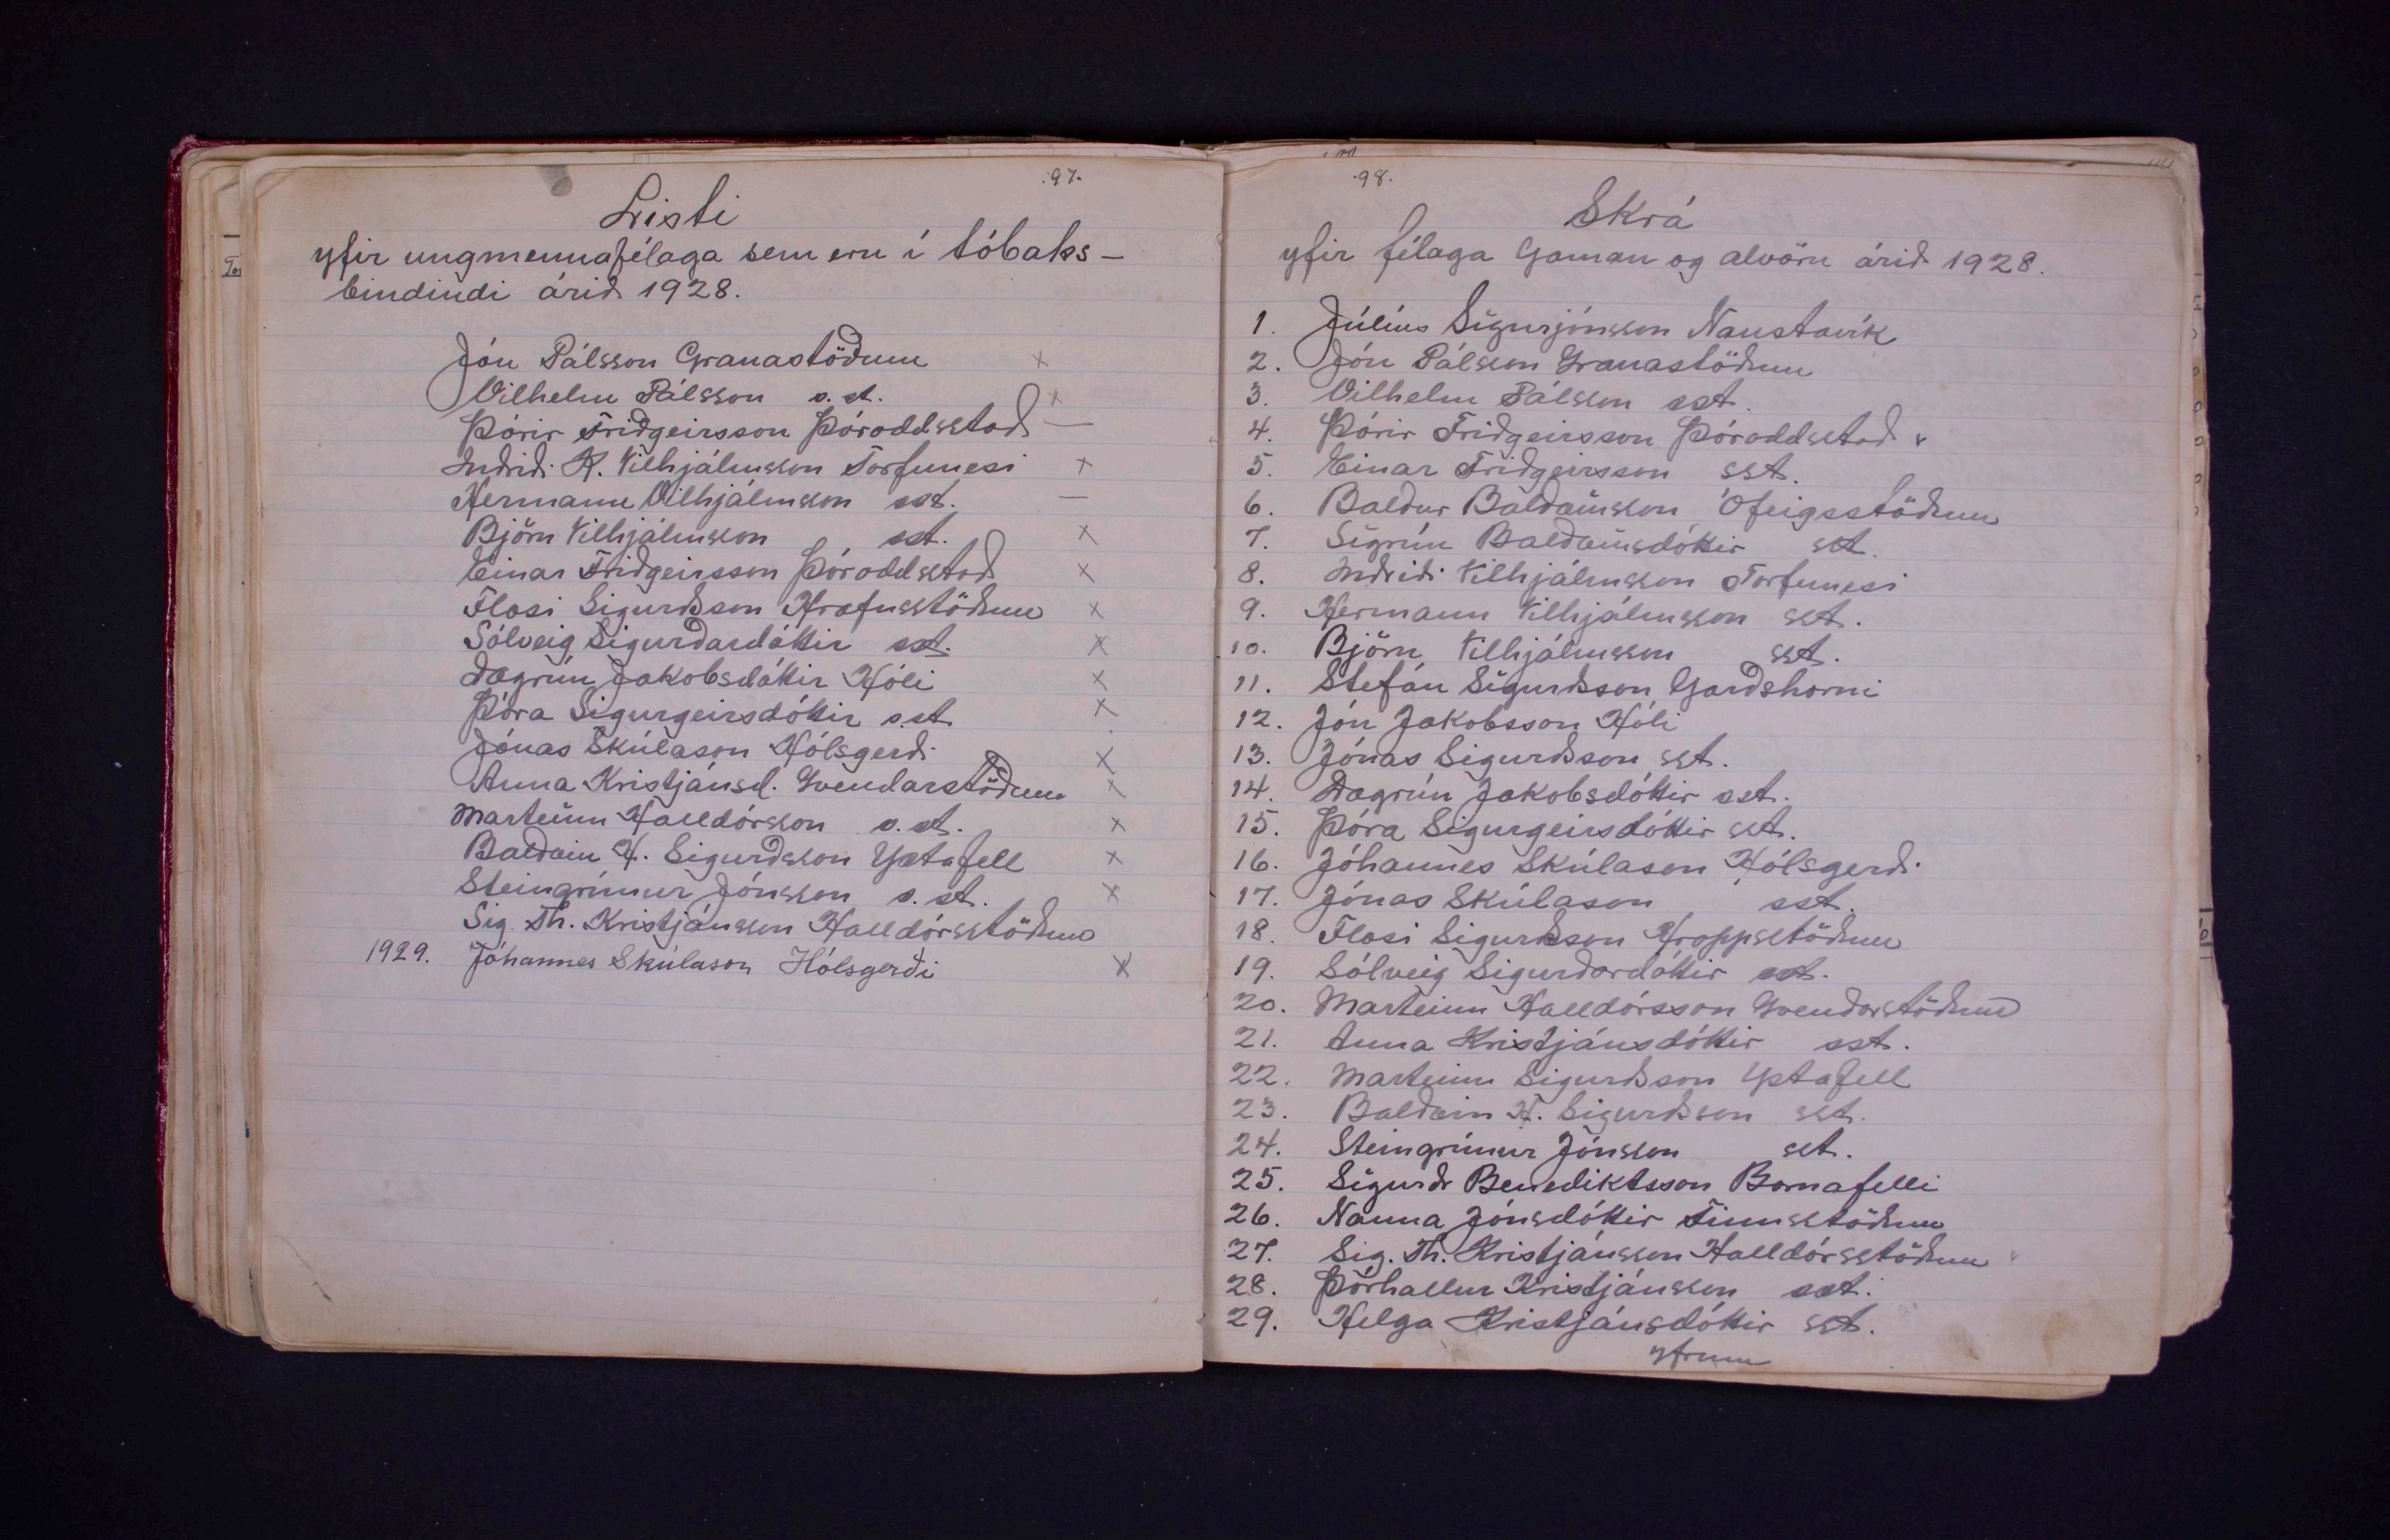 97.
Listi
yfir ungmennafélaga sem eru í tóbaks-
bindindi árið 1928.
Jón Pálsson Granastöðum x
Vilhelm Pálsson s.st. x
Þórir Friðgeirsson Þóroddsstað —
Indriði K. Vilhjálmsson Torfunesi x
Hermann Vilhjálmsson sst. —
Björn Vilhjálmsson sst. x
Einar Friðgeirsson Þóroddstað x
Flosi Sigurðsson Hrafnsstöðum x
Sólveig Sigurðardóttir sst. x
Dagrún Jakobsdóttir Hóli x
Þóra Sigurgeirsdóttir s.st. x
Jónas Skúlason Hólsgerði x
Anna Kristjánsd. Gvendarstöðum x
Marteinn Halldórsson s.st. x
Baldvin H. Sigurðsson Ystafell x
Steingrímur Jónsson s.st. x
Sig. Th. Kristjánsson Halldórsstöðum
1929. Jóhannes Skúlason Hólsgerði x
98.
Skrá
yfir félaga Gaman og alvöru árið 1928.
1. Júlíus Sigurjónsson Naustavík
2. Jón Pálsson Granastöðum
3. Vilhelm Pálsson sst.
4. Þórir Friðgeirsson Þóroddsstað
5. Einar Friðgeirsson sst.
6. Baldur Baldvinsson Ófeigsstöðum
7. Sigrún Baldvinsdóttir sst.
8. Indriði Vilhjálmsson Torfunesi
9. Hermann Vilhjálmsson sst.
10. Björn Vilhjálmsson sst.
11. Stefán Sigurðsson Garðshorni
12. Jón Jakobsson Hóli
13. Jónas Sigurðsson sst.
14. Dagrún Jakobsdóttir sst.
15. Þóra Sigurgeirsdóttir sst.
16. Jóhannes Skúlason Hólsgerði
17. Jónas Skúlason sst.
18. Flosi Sigurðsson
19. Sólveig Sigurðardóttir sst.
20. Marteinn Halldórsson Gvendarstöðum
21. Anna Kristjánsdóttir sst.
22. Marteinn Sigurðsson Ystafell
23. Baldvin H. Sigurðsson sst.
24. Steingrímur Jónsson sst.
25. Sigurðr Benediktsson Barnafelli
26. Nanna Jónsdóttir Finnsstöðum
27. Sig. Th. Kristjánsson Halldórsstöðum
28. Þórhallur Kristjánsson sst.
29. Helga Kristjánsdóttir sst.